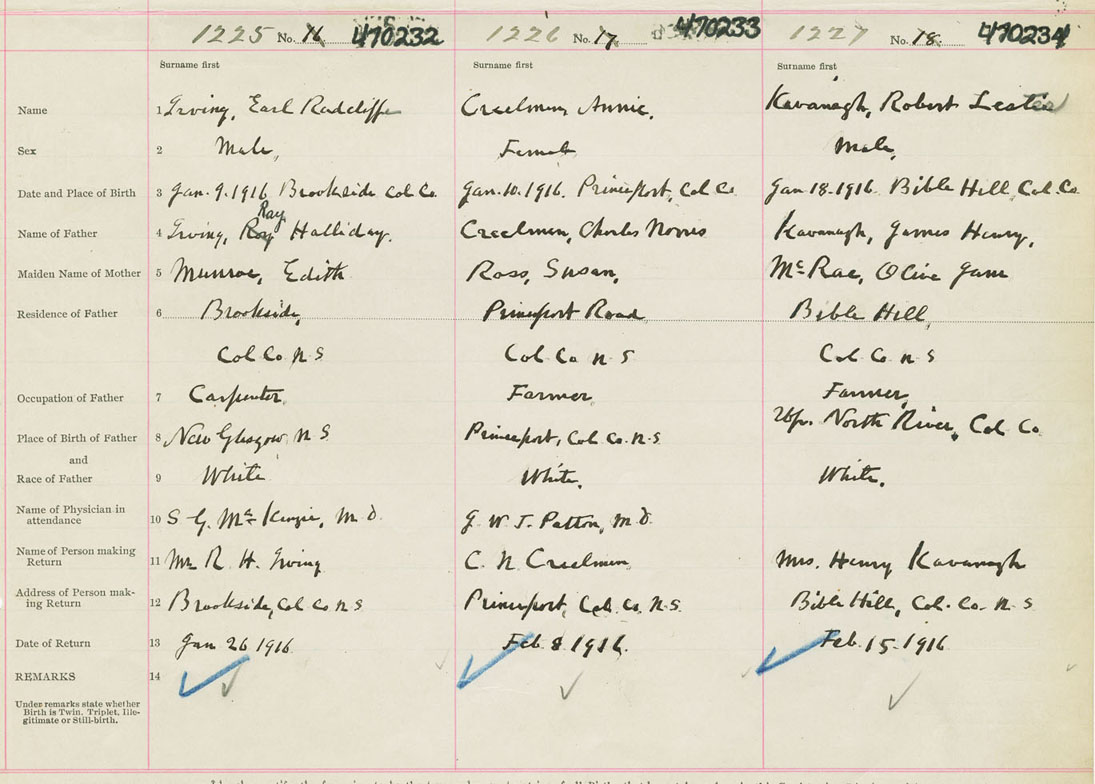 1225 No. 16. 470232 1226 No. 17. 470233 1227 No. 18. 470234
Surname first Surname first Surname first
Name 1 Irving, Earl Radcliffe Creelman, Annie. Kavanagh, Robert Lester
Sex 2 Male, Female Male,
Date and Place of Birth 3 Jan. 9. 1916 Brookside Col Co. Jan. 10. 1916. Princeport, Col Co. Jan 18. 1916. Bible Hill, Col. Co.
Ray
Name of Father 4 Irving, Roy Halliday. Creelman, Charles Norris Kavanagh, James Henry,
Maiden Name of Mother 5 Munroe, Edith Ross, Susan, McRae, Olive Jane
Residence of Father 6 Brookside, Princeport Road Bible Hill,
Col Co. N S Col Co. N S Col Co. N S
Occupation of Father 7 Carpenter. Farmer Farmer,
Place of Birth of Father 8 New Glasgow, N S Princeport, Col. Co. N. S. Upr. North River, Col Co.
and
Race of Father 9 White White, White.
Name of Physician in
attendance 10 S. G. McKenzie, M. D. J. W. T. Patton, M. D.
Name of Person making
Return 11 Mr. R. H. Irving C. N. Creelman Mrs. Henry Kavanagh
Address of Person mak-
ing Return 12 Brookside, Col Co N S Princeport, Col. Co. N. S. Bible Hill, Col. Co. N. S
Date of Return 13 Jan 26 1916 Feb. 8. 1916. Feb. 15. 1916
REMARKS 14
Under remarks state whether
Birth is Twin, Triplet, Ille-
gitimate or Still-birth.